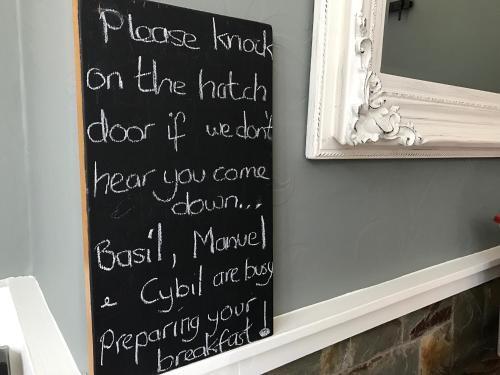 Please knock
on the hatch
door if we don't
hear you come
down...
Basil, Manuel
& Cybil are busy
Preparing your
breakfast!